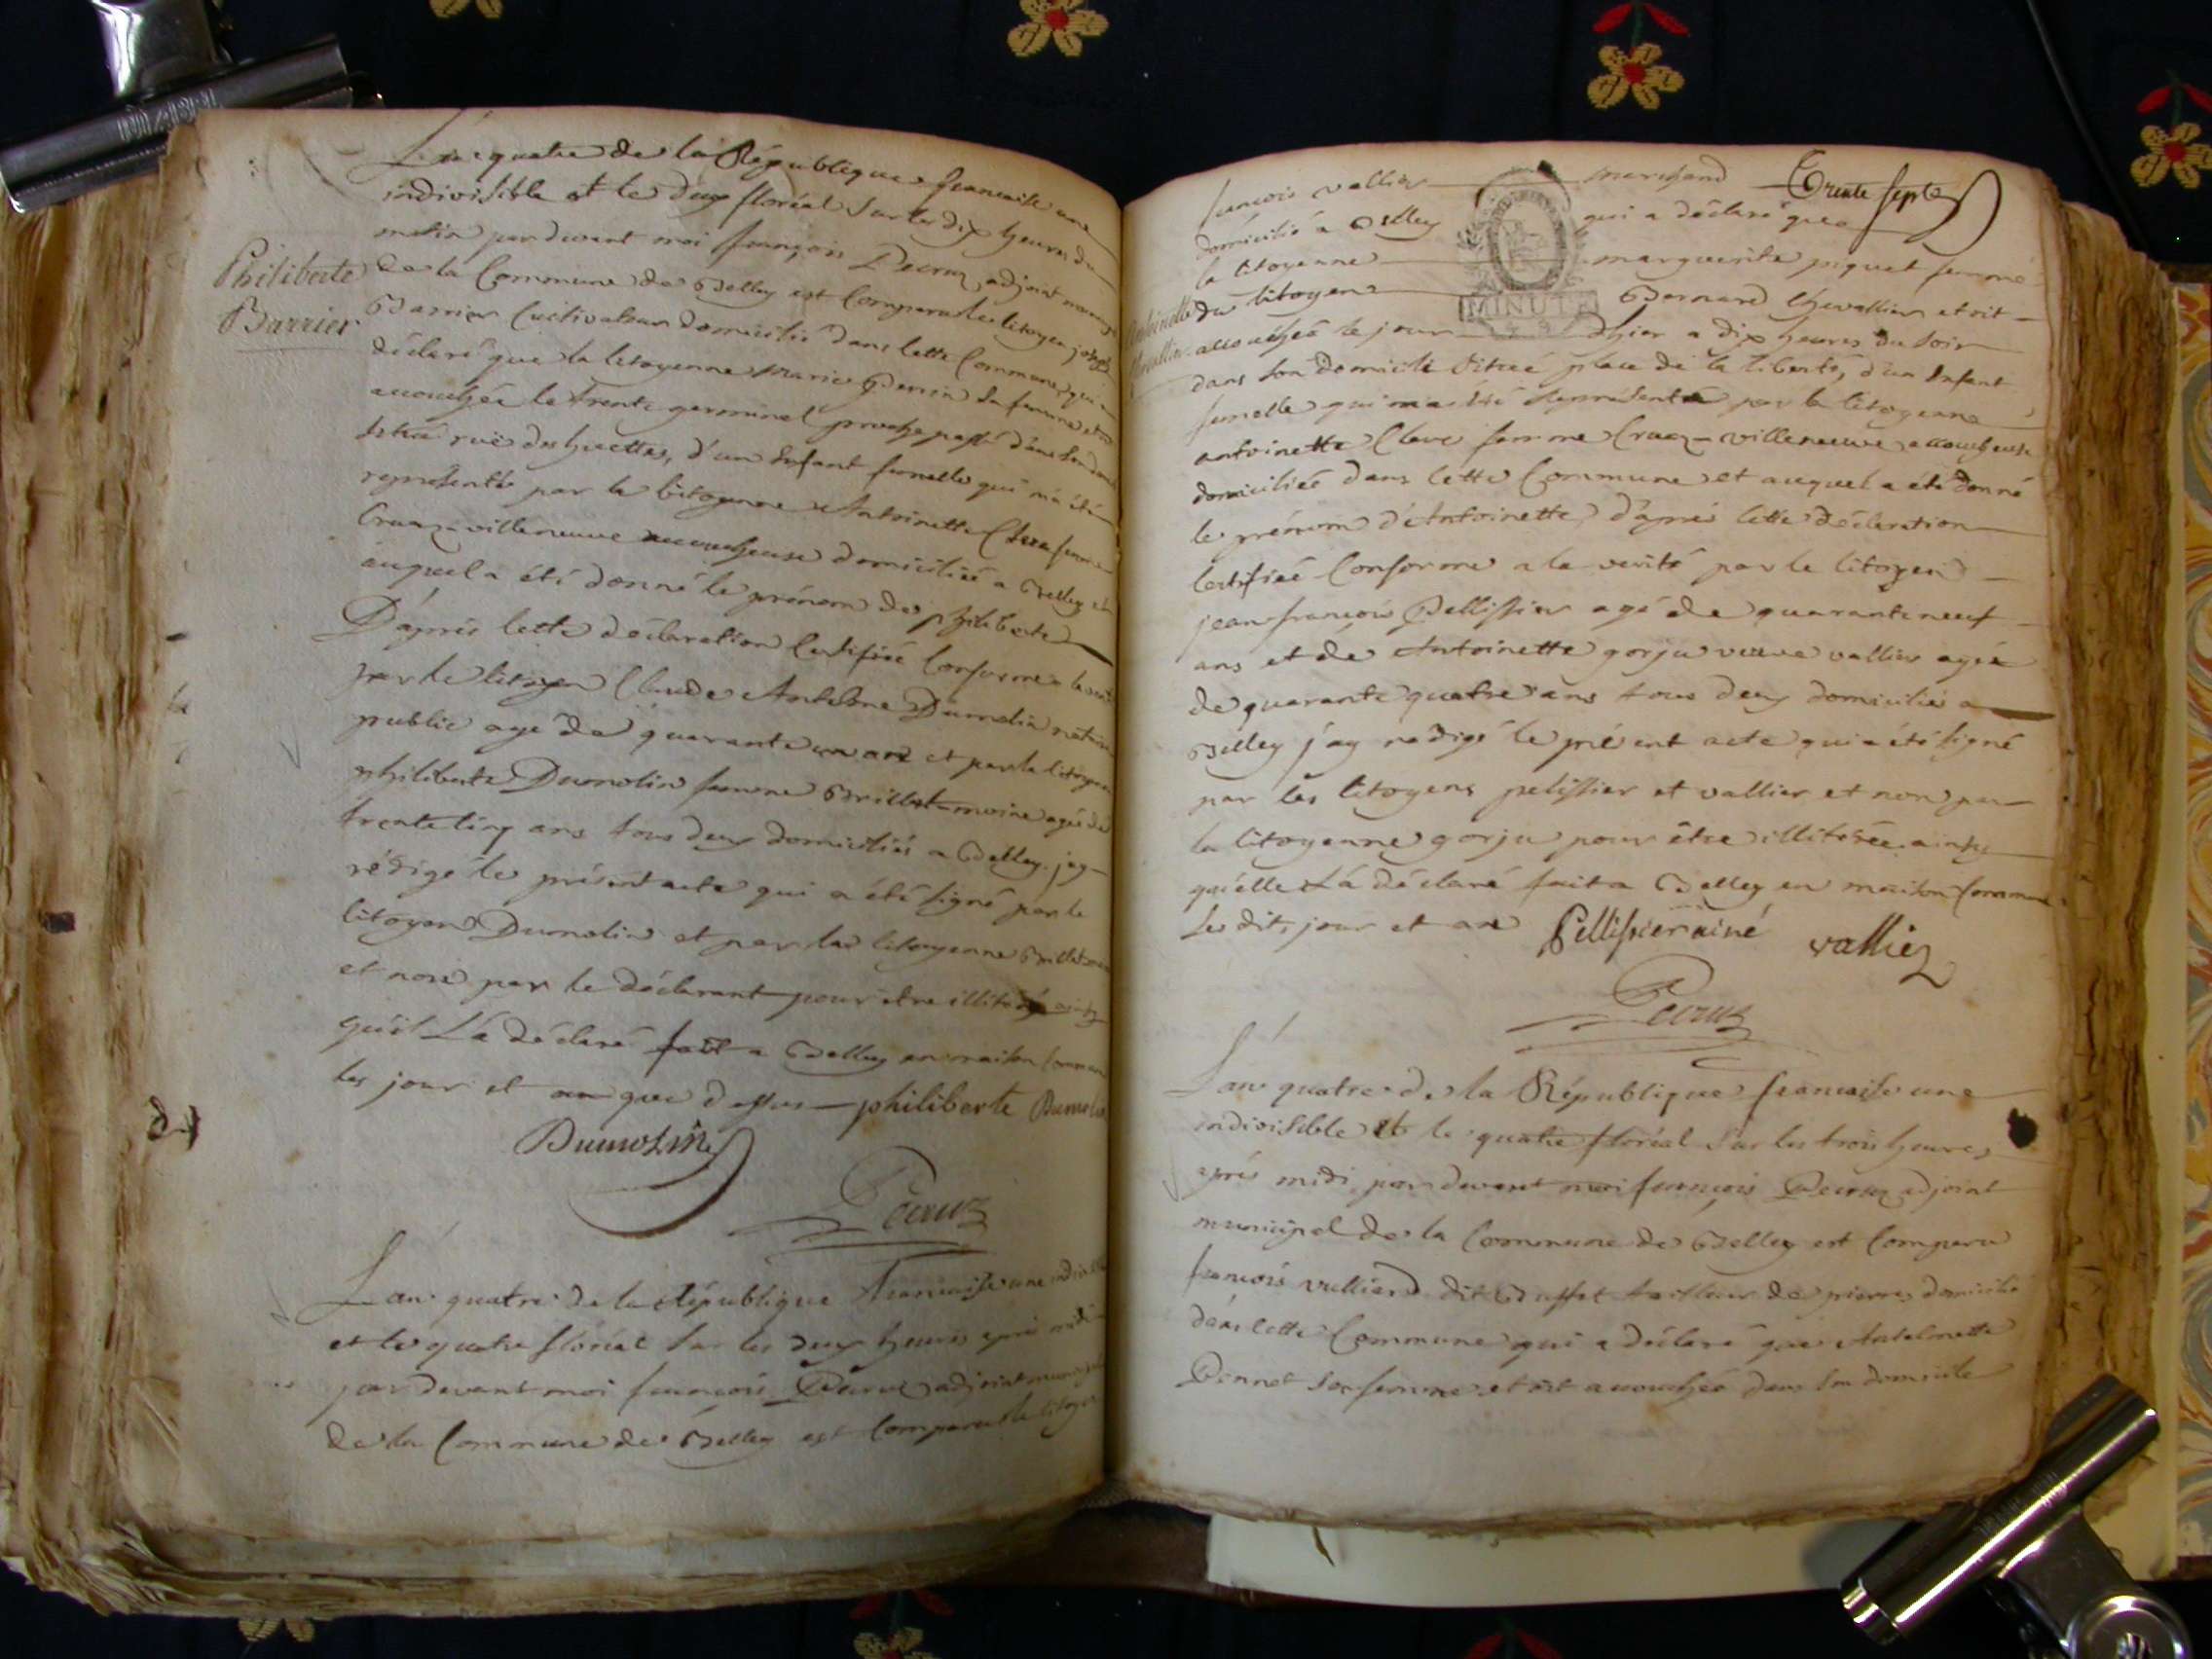 L'an quatre de la République francaise une
indivisible et le deux floréal sur les dix heures du
matin par devant moi françois Pecruz adjoint
de la Commune de Belley est Comparu le citoyen joseph
Barrier Cultivateur domicilié dans cette Commune qui a
déclaré que la citoyenne Marie Perrin sa femme
accouchée le trente germinal proche passé dans son
Située ruë des huettes, d'un Enfant femelle qui m'a été
représenté par la Citoyenne Antoinette femme
Cruaz-villeneuve accoucheuse domiciliée a Belley et
auquel a été donné le prénom de philiberte
D'après cette déclaration Certifiée Conforme a la
par le Citoyen Claude Antelme Dumolin notaire
public agé de quarante un ans et par la Citoyenne
philiberte Dumolin femme Brillat-moine agée de
trente cinq ans tous deux domiciliés a Belley. j'ay
rédigé le présent acte qui a été signé par le
Citoyen Dumolin et par la Citoyenne
et non par le déclarant pour etre illitéré
qu'il L'a déclaré fait a Belley en maison Commune
les jour et an que dessus philiberte Dumolin
Dumolin
Pecruz
Philiberte
Barrier
L'an quatre de la République francaise une
et le quatre floréal sur les deux heures après midi
par devant moi francois Pecruz adjoint
de la Commune de Belley est Comparu le Citoyen
Trente sept
francois vallier marchand
domicilié a Belley qui a déclaré que
la Citoyenne marguerite piquet femme
du Citoyen Bernard Chevallier etoit
accouchée le jour dhier a dix heures du soir
MINUTE
dans son domicile Situé place de la liberté, d'un Enfant
femelle qui m'a été représenté par la Citoyenne
antoinette femme Cruaz-villeneuve accoucheuse
domiciliée dans cette Commune et auquel a été donné
le prénom d'Antoinette d'après cette déclaration
Certifiée Conforme a la verité par le Citoyen
jean francois Pellissier agé de quarante neuf
ans et de Antoinette gorju veuve vallier agée
de quarante quatre ans tous deux domiciliés a
Belley j'ay redigé le présent acte qui a été signé
par les Citoyens pelissier et vallier et non par
la Citoyenne gorju pour être illitérée ainsy
qu'elle L'a déclaré fait a Belley en maison Commune
les dits jour et an Pellissier ainé vallier
Pecruz
L'an quatre de la République francaise une
indivisible et le quatre floréal sur les trois heures
après midi, par devant moi françois Pecruz adjoint
municipal de la Commune de Belley est Comparu
francois vulliard dit Buffet tailleur de pierres domicilié
dans cette Commune qui a déclaré que Antelmette
Ponnet Sa femme etoit accouchée dans son domicile